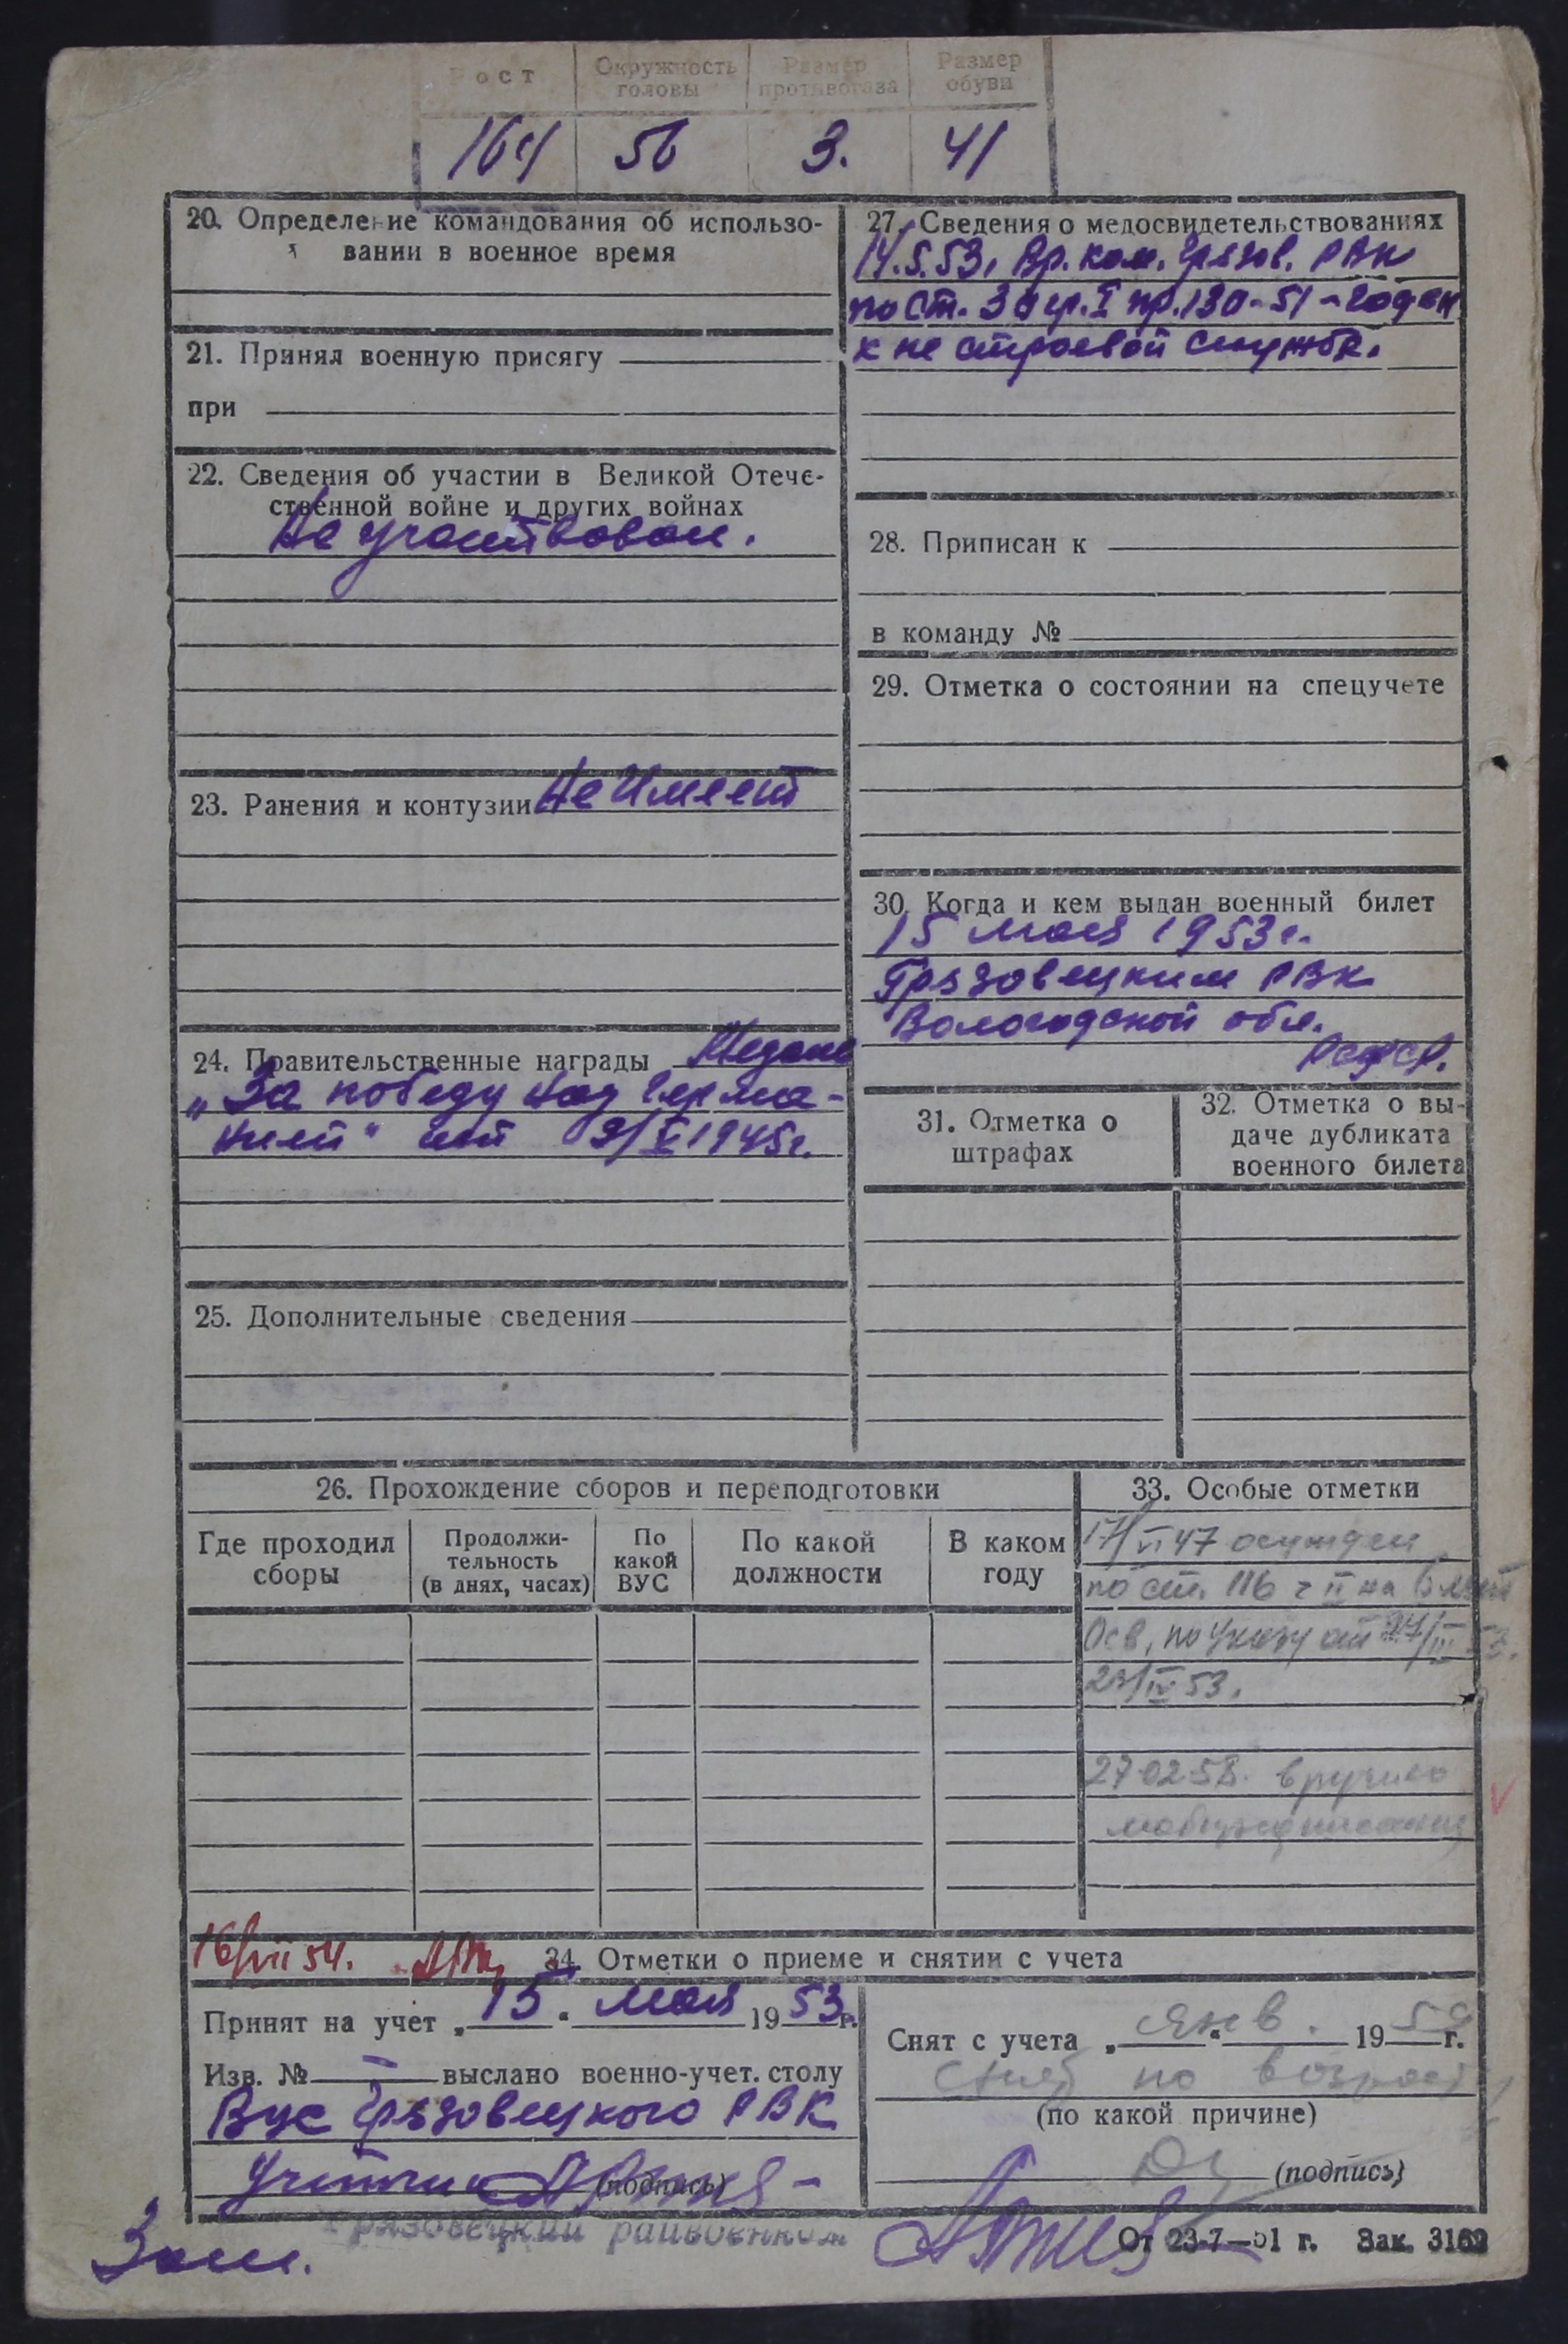 Рост Окружность головы Размер противогаза Размер обуви
164 56 3. 41
20. Определение командования об использо-
вании в военное время
21. Принял военную присягу
при
22. Сведения об участии в Великой Отече-
ственной войне и других войнах
Не участвовал.
23. Ранения и контузии Не имеет
24. Правительственные награды Медаль
„За победу над Герма-
нией" от 9/V 1945г.
25. Дополнительные сведения
27. Сведения о медосвидетельствованиях
14.5.53, Вр. ком. Грязов. РВК
по ст. 3 гр. I пр. 130-51 - годен
к не строевой службе.
28. Приписан к
в команду №
29. Отметка о состоянии на спецучете
30. Когда и кем выдан военный билет
15 мая 1953г.
Грязовецким РВК
Вологодской обл.
РСФСР.
31. Отметка о
штрафах
32. Отметка о вы-
даче дубликата
военного билета
26. Прохождение сборов и переподготовки
Где проходил сборы
Продолжи-
тельность
(в днях, часах)
По какой ВУС
По какой должности
В каком году
33. Особые отметки
17/VI 47 осужден
по ст. 116 ч II на 6 лет
Осв, по Указу от 27/III 53.
/IV 53.
27.02.58. вручено
мобпредписание
16/VII 54.
34. Отметки о приеме и снятии с учета
Принят на учет „15" мая 1953г.
Изв. № — выслано военно-учет. столу
Вус Грязовецкого РВК
(подпись)
Снят с учета „ " янв. 19 г.
снят по возрасту
(по какой причине)
(подпись)
Грязовецкий райвоенком
От 23-7—51 г. Зак. 3162